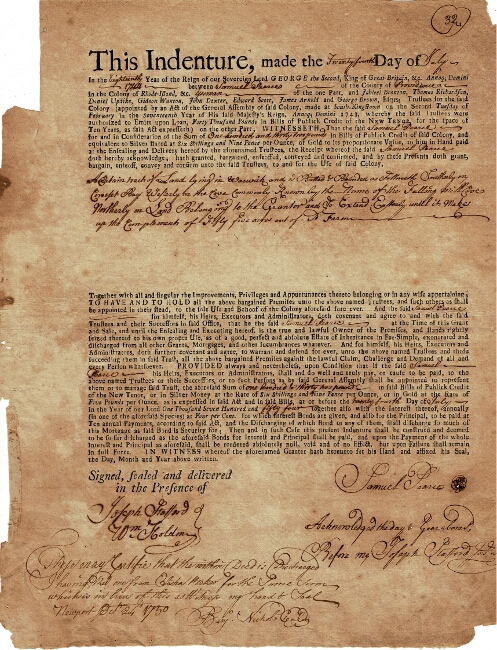 32
This Indenture, made the Twenty fourth Day of July
In the Eighteenth Year of the Reign of our Sovereign Lord GEORGE the Second, King of Great-Britain, &c. Annoq; Domini
1744 between Samuel Pearce of the County of Providence
in the Colony of Rhode-Island, &c. of the one Part, and
Daniel Updike, Gideon Wanton, John Dexter, Edward Scott, James Arnold and George Brown, Esqrs; Trustees for the said
Colony (appointed by an Act of the General Assembly of said Colony, made at on the Second Tuesday of
February in the Year of his said Majesty's Reign, Annoq; Domini 1743, whereby the said Trustees were
authorized to Emit upon Loan, Forty Thousand Pounds in Bills of Publick Credit of the NEW TENOR, for the space of
Ten Years, as said Act expresseth) on the other Part, WITNESSETH, That the said Samuel Pearce
for and in Consideration of the Sum of One hundred and thirty two pounds in Bills of Publick Credit of said Colony, and
equivalent to Silver Rated at Six Shillings and Nine Pence per Ounce, or Gold to its proportionate Value, to him in Hand paid
at the Ensealing and Delivery hereof by the aforenamed Trustees, the Receipt whereof the said Samuel Pearce
doth hereby acknowledge, hath granted, bargained, enfeoffed, conveyed and confirmed, and by these Presents doth grant,
bargain, enfeoff, convey and confirm unto the said Trustees, to and for the Use of said Colony,
A Certain tract of Land lying in Warwick and is Butted & Bounded as Followeth Southerly on
Westerly on the Cove Commonly Known by the Name of the Cove
Northerly on Land Belonging to the Grantor and To Extend Easterly until it Makes
up the Complement of Fifty five acres out of Farm
Together with all and singular the Improvements, Privileges and Appurtenances thereto belonging or in any wise appertaining
TO HAVE AND TO HOLD all the above bargained Premises unto the above named Trustees, and such others as shall
be appointed in their Read, to the sole Use and Behoof of the Colony aforesaid for ever. And the said Samuel Pearce
for himself, his Heirs, Executors and Administrators, doth covenant and agree to and with the said
Trustees and their Successors in said Office, that he the said Samuel Pearce at the Time of this Grant
and Sale, and until the Ensealing and Executing hereof, is the true and lawful Owner of the Premises, and stands rightfully
seized thereof to his own proper Use, as of a good, perfect and absolute Estate of Inheritance in Fee-Simple, exonerated and
discharged from all other Grants, Mortgages, and other Incumbrances whatsoever. And for himself, his Heirs, Executors and
Administrators, doth further covenant and agree, to warrant and defend for ever, unto the above named Trustees and those
succeeding them in said Trust, all the above bargained Premises against the lawful Claim, Challenge and Demand of all and
every Person whomsoever. PROVIDED always and nevertheless, upon Condition that if the said Samuel
Pearce his Heirs, Executors or Administrators, shall and do well and truly pay, or cause to be paid, to the
above named Trustees or their Successors, or to such Persons as by said General Assembly shall be appointed to represent
them or to manage said Trust, the aforesaid Sum of One Hundred & thirty two pounds in said Bills of Publick Credit
of the New Tenor, or in Silver Money at the Rate of Six Shillings and Nine Pence per Ounce, or in Gold at the Rate of
Five Pounds per Ounce, as is expressed in said Act and in said Bills, at or before the twenty fourth Day of July
in the Year of our Lord One Thousand Seven Hundred and fifty four together also with the Interest thereof, annually
in one of the aforesaid Species at Four per Cent. for which Interest Bonds are given, and also for the Principal, to be paid at
Ten annual Payments, according to said Act, and the Discharging of which Bond or any of them, shall discharge so much of
this Mortgage as said Bond is Security for; Then and in such Case this present Indenture shall be construed and deemed
to be so far discharged as the aforesaid Bonds for Interest and Principal shall be paid, and upon the Payment of the whole
Interest and Principal as aforesaid, shall be rendered absolutely null, void and of no Effect, but upon Failure shall remain
in full Force. IN WITNESS whereof the aforenamed Grantor hath hereunto set his Hand and affixed his Seal,
the Day, Month and Year above written.
Signed, sealed and delivered
in the Presence of
Samuel Pearce
Joseph Stafford
Wm Holden
Acknowledged the day & Year above
Before me Joseph Stafford
These may Certifie that the within Deed is Discharged
Having Recd
which is in Lieu of this witness my hand & Seal
Newport Octr 24th 1750